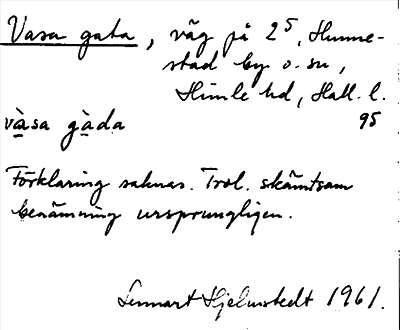 Vasa gata, väg på 2⁵, Hunne-
stad by o. sn,
Himle hd, Hall. l.
và̱sa gà̱da 95
Förklaring saknas. Trol. skämtsam
benämning ursprungligen.
Lennart Hjelmstedt 1961.